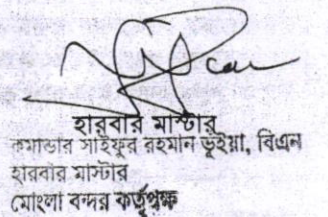 হারবার মাস্টার
কমান্ডার সাইফুর রহমান ভূঁইয়া, বিএন
হারবার মাস্টার
মোংলা বন্দর কর্তৃপক্ষ